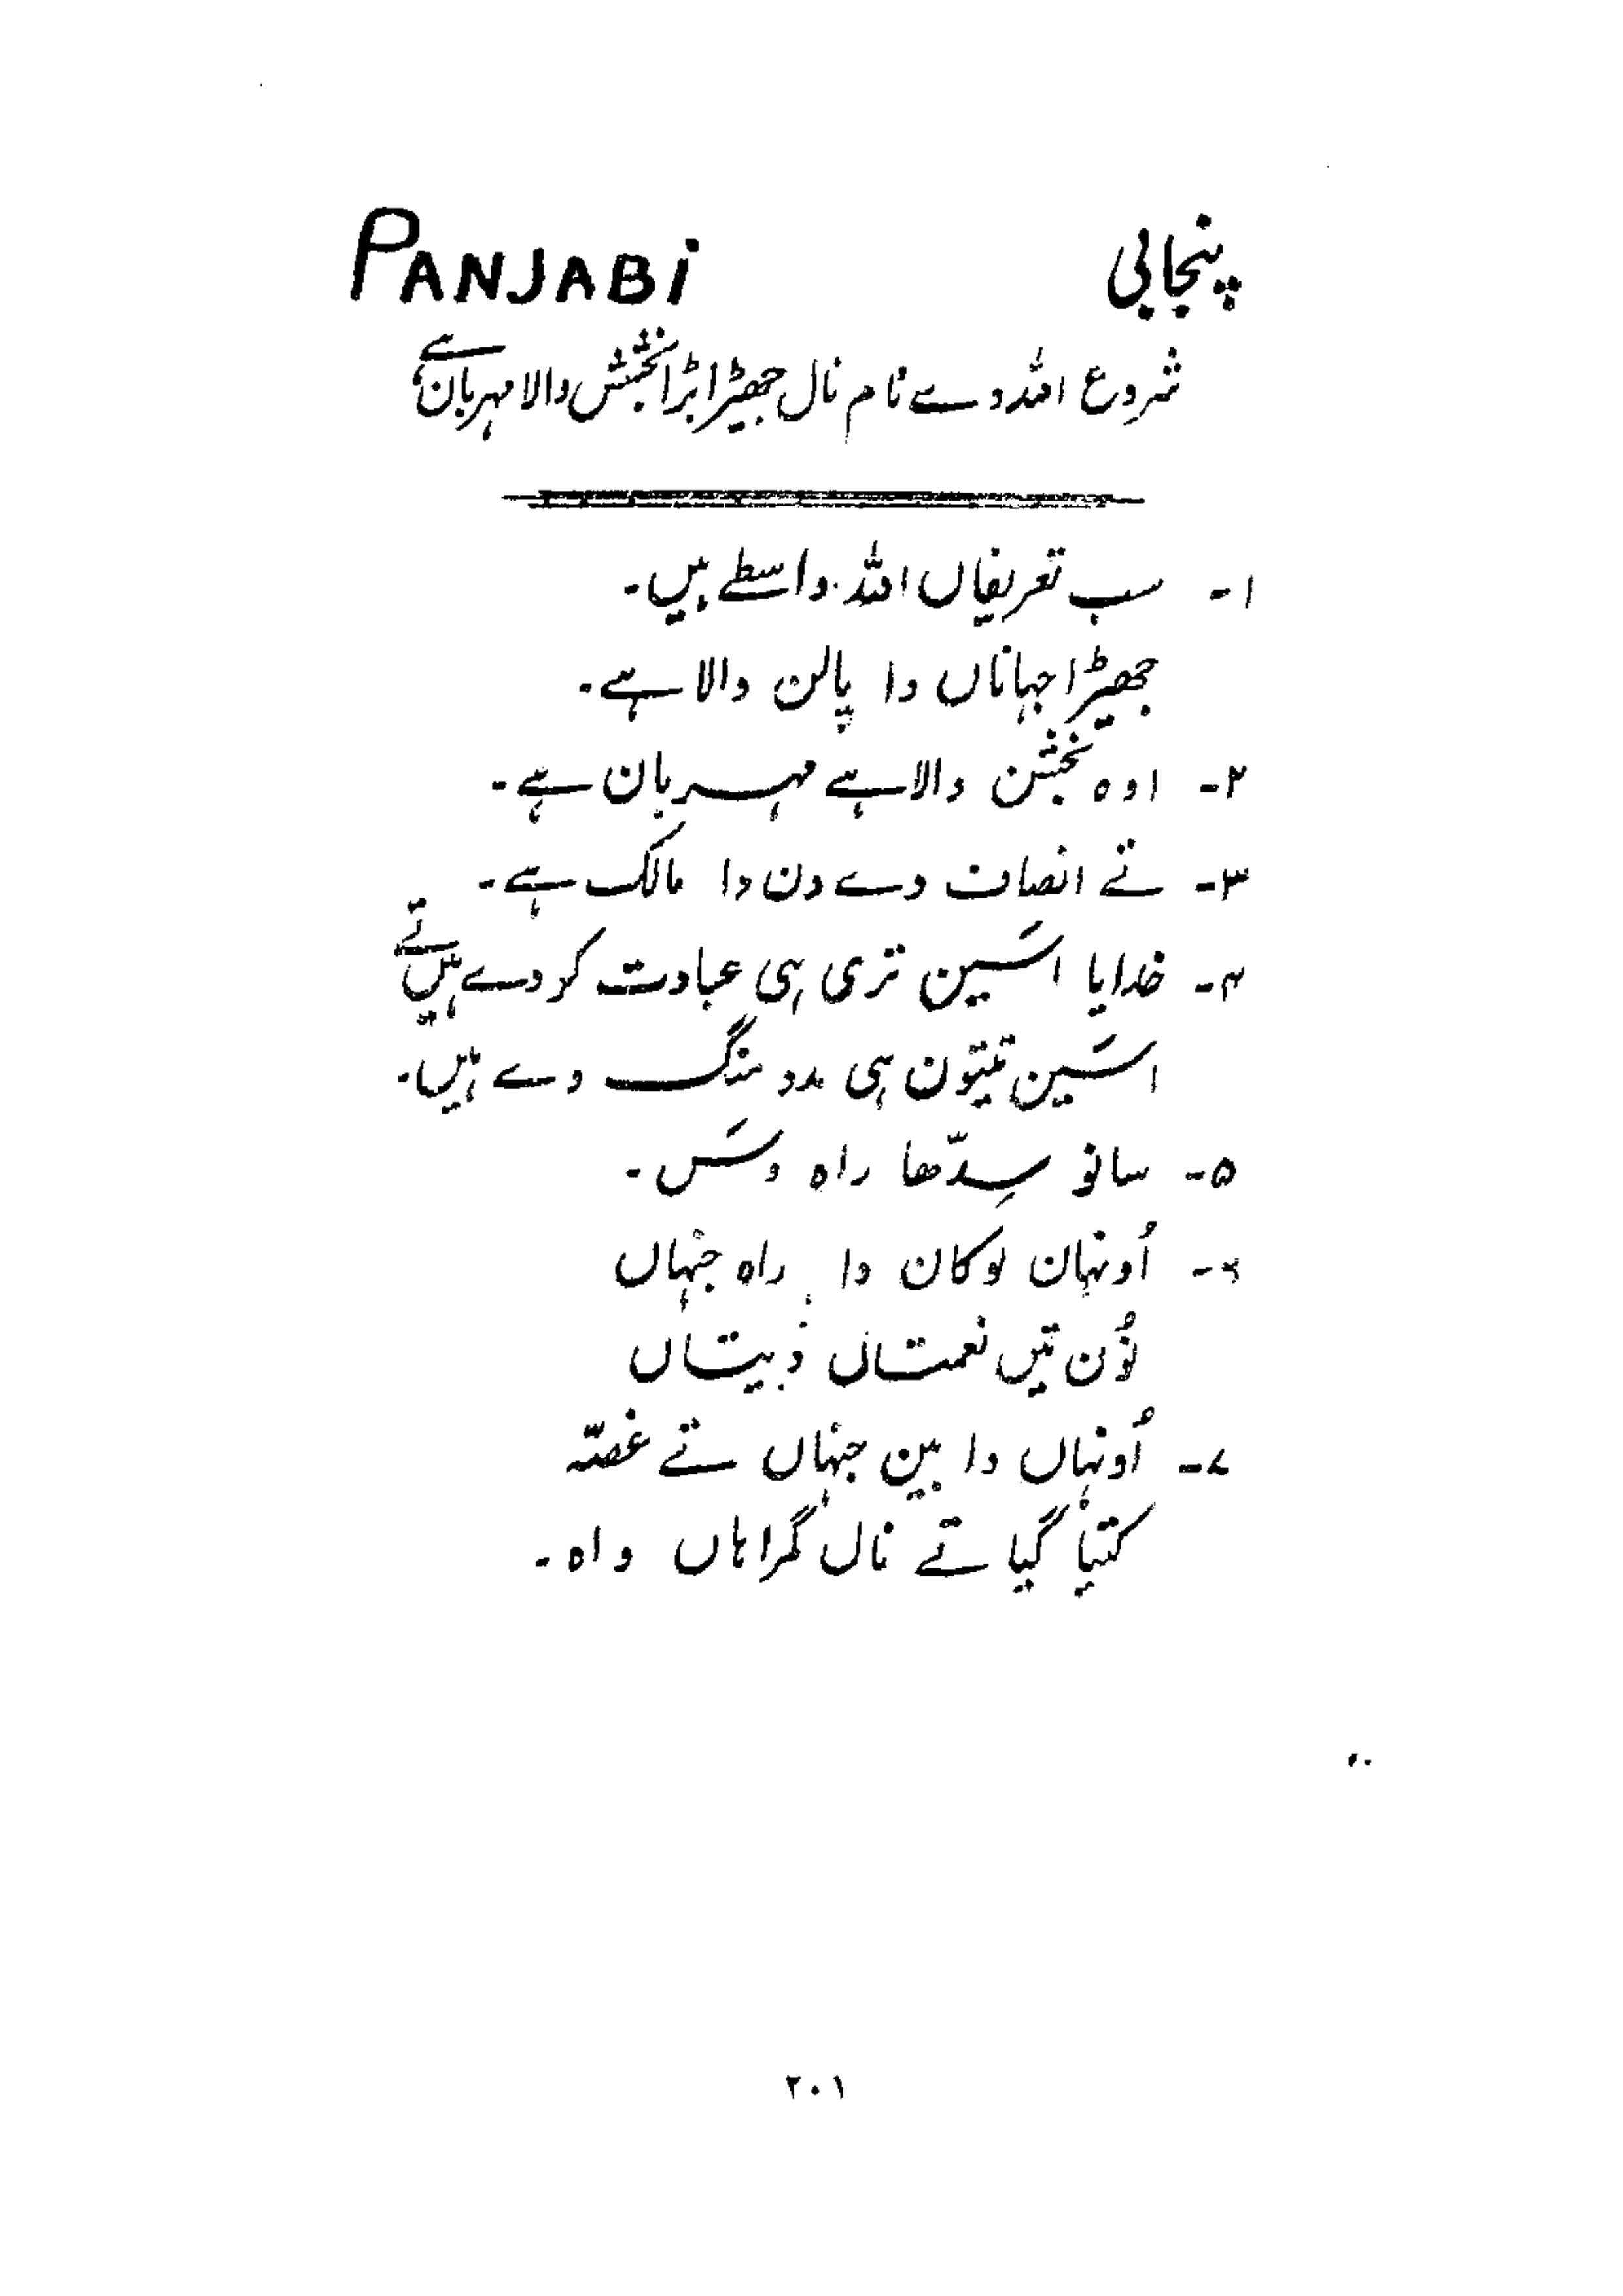 PANJABi پنجابی
شروع اللہ دے نام نال جھیڑا بڑا بخشش والا مہربان ہے
۱- سب تعریفاں اللہ واسطے ہیں۔
جھیڑا جہاناں دا پالن والا ہے۔
۲- اوہ بخشن والا ہے مہربان ہے۔
۳- تے انصاف دے دن دا مالک ہے۔
۴- خدایا اسَین تری ہی عبادت کردے ہیں تے
اسَین تیتون ہی مدد منگ دے ہیں۔
۵- سانو سِدّھا راہ وسَں۔
۶- اُونہان لوکان دا راہ جنہاں
نوُن تیں نعمتاں
۷- اُونہاں دا جنہاں تے غصّہ
کیتا گیا تے نال گمراہاں واہ۔
۲۰۱